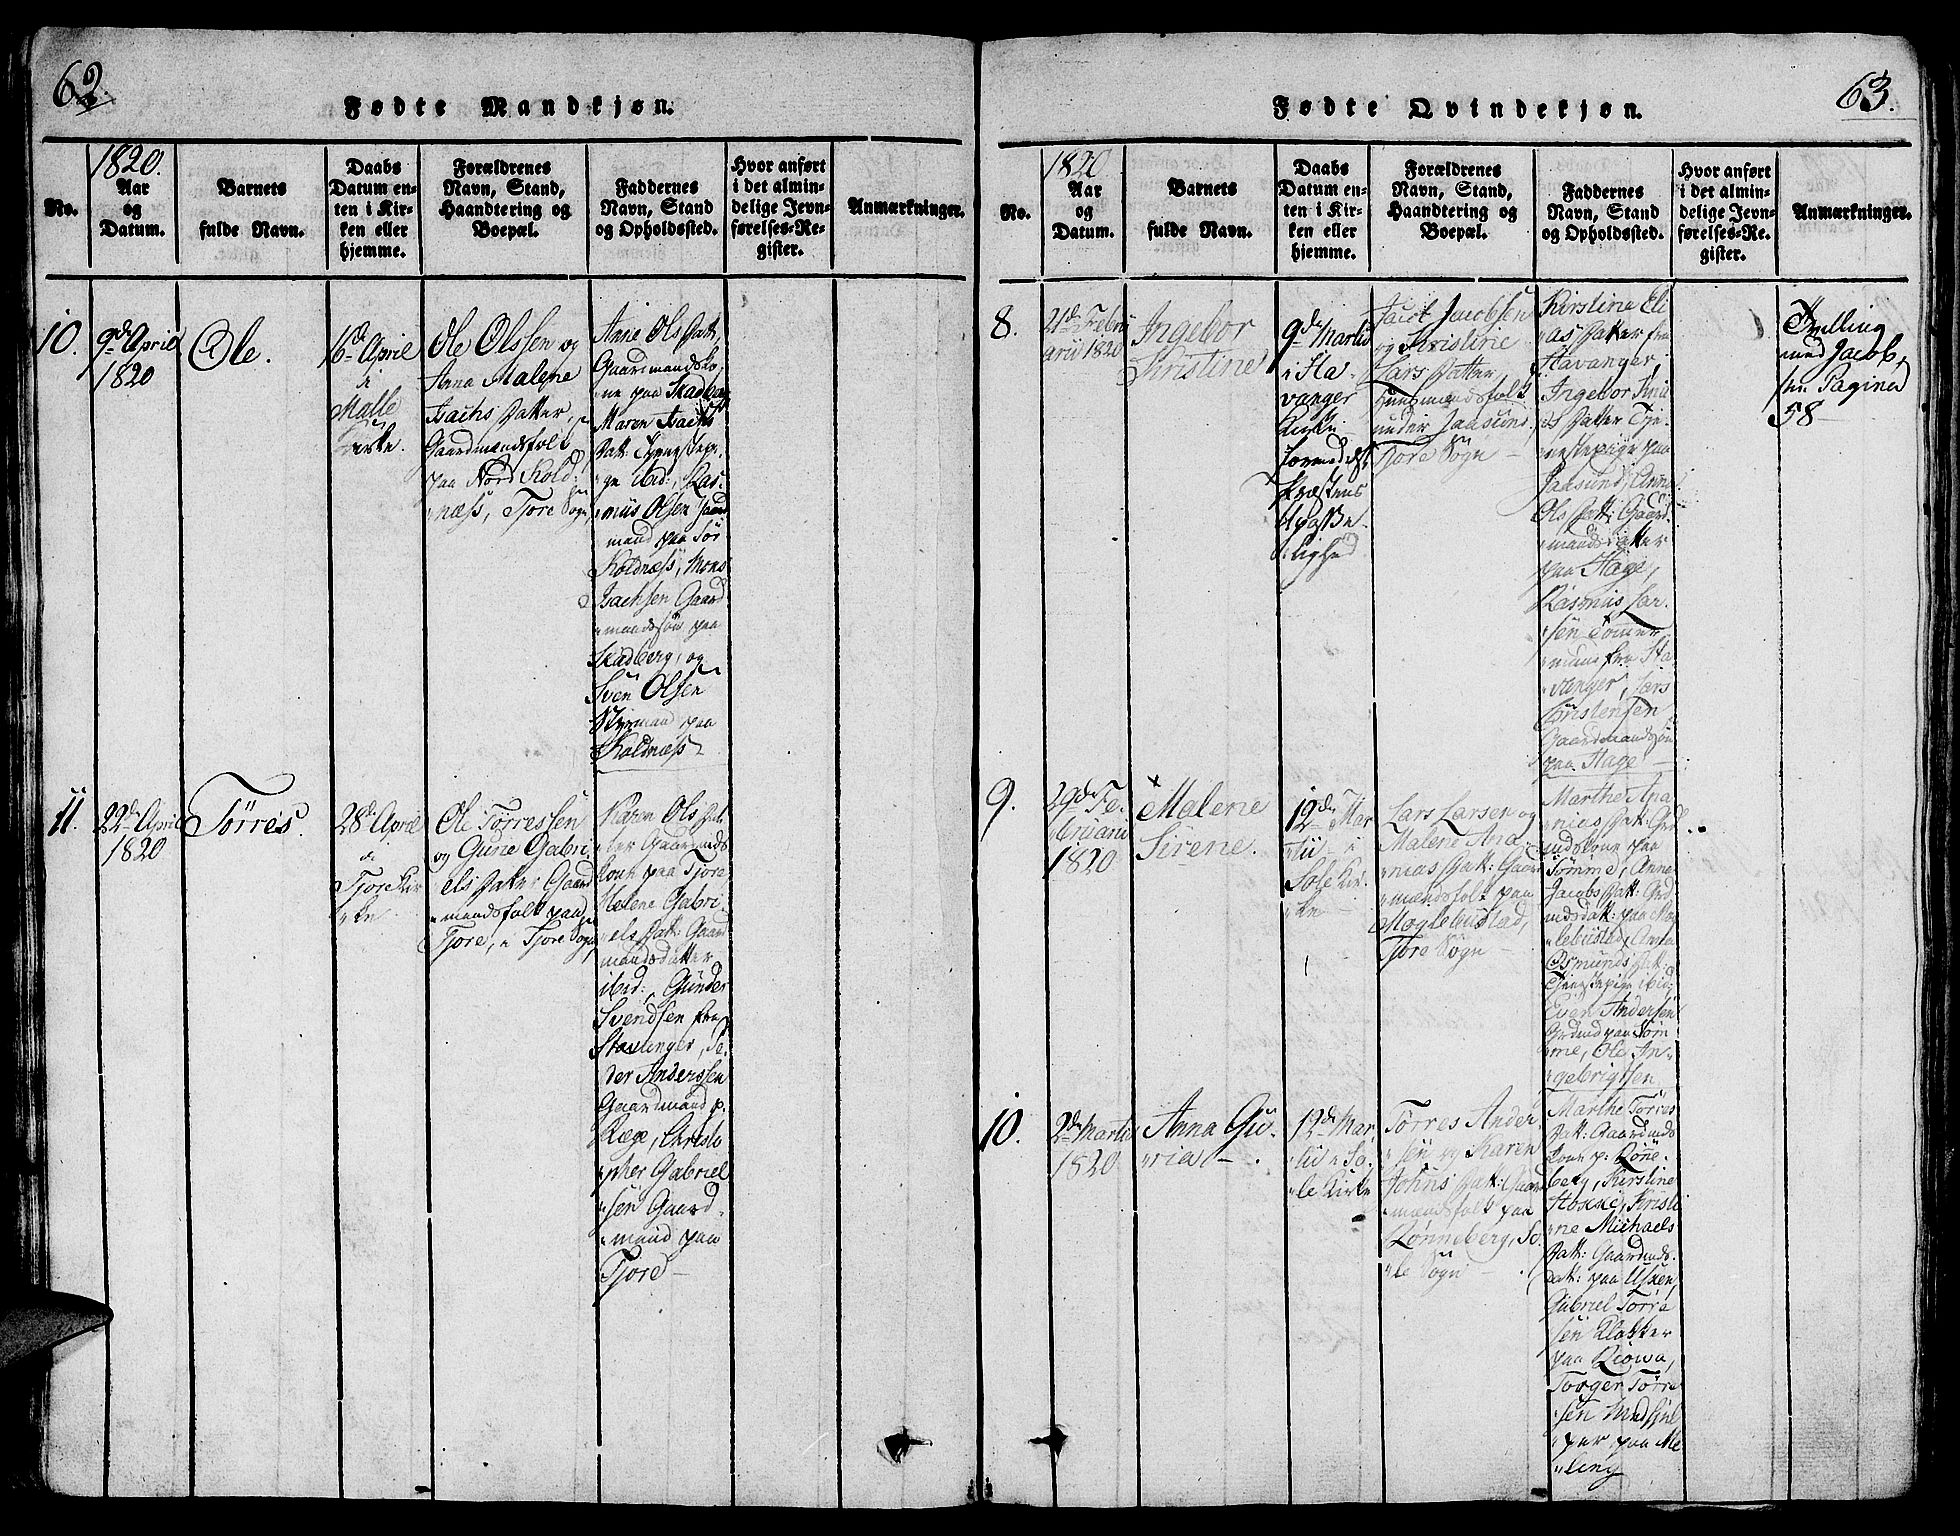 62.
Fødte Mandkjøn.
No.
1820.
Aar
og
Datum.
Barnets
fulde Navn.
Daabs
Datum en-
ten i Kir-
ken eller
hjemme.
Forældrenes
Navn, Stand,
Haandtering og
Boepæl.
Faddernes
Navn, Stand
og Opholdssted.
Hvor anført
i det almin-
delige Jevn-
førelses-Re-
gister.
Anmærkninger.
10.
9de April
1820
Ole.
16de April
i
Malle
Kirke.
Ole Olssen og
Anna Malene
Isachs Datter,
Gaardmandsfolk
paa Nord Kold:
næss, Tjore Sogn
Anne Ols Datt,
Gaardmandsko,
ne paa Skadberg
Maren Isachs
Datt: Tjenestepi,
ge ibid:, Ras,
mus Olsen Gaard
mand paa Sør
Koldnæss, Mons
Isachsen Gaard
mandssøn paa
Skadberg, og
Sven Olsen
Styrmand paa
Koldnæss
11.
22de April
1820
Tørres.
28de April
i
Tjore Kir
ke
Ole Tørressen
og Gune Gabri,
els Datter Gaard
mandsfolk paa
Tjore, i Tjore Sogn
Karen Ols Dat,
ter Gaardmands
kone paa Tjore,
Helene Gabri,
els Datt: Gaard
mandsdatter
ibid:, Gunder
Svendsen fra
Stavanger, Pe,
der Anderssen
Gaardmand p.
Ræge, Christo
pher Gabriel
sen Gaard,
mand paa
Tjore
63.
Fødte Qvindekjøn.
No.
1820
Aar
og
Datum.
Barnets
fulde Navn.
Daabs
Datum en-
ten i Kir-
ken eller
hjemme.
Forældrenes
Navn, Stand,
Haandtering og
Boepæl.
Faddernes
Navn, Stand
og Opholdssted.
Hvor anført
i det almin-
delige Jevn-
førelses-Re-
gister.
Anmærkninger.
8.
21de Febru
arii 1820
Ingebor
Kristine
9de Martii
i Sta,
vanger
Kirke
formedelst
Præstens
Upasse
lighed
Jacob Jacobsen
og Kristine
Lars Datter
Huusmandsfolk
under Jaasund,
Tjore Sogn
Kirstina Eli
as Datter fra
Stavanger
Ingebor
Datter Tje,
nestepige paa
Jaasund, Anna
Ols Datt: Gaard
mandsdatter
paa Hage,
Rasmus Lar,
sen Tømmer
mand fra Sta
vanger, Lars
Christensen
Gaardmandssøn
paa Hage
Tvilling
med Jacob,
Pagina
58
9.
29de Fe,
bruarii
1820
Malene
Sirene.
12de Mar
tii i
Sole Kir,
ke
Lars Larsen og
Malene Ana,
nias Datt: Gaard
mandsfolk paa
Moglebustad,
Tjore Sogn
Marthe Ana
nias Datt: Grd
mdskone paa
Sømme, Anne
Jacobs Datt: Grd
mdsdatt: paa Mog
lebustad, Anna
Osmunds Datt:
Tjenstepige ibid,
Even Andersen
Grdmd paa Søm
me, Ole In,
gebrigtsen
10.
2de Martii
1820
Anna Gu,
ria
12de Mar,
tii i So,
le Kirke
Tørres Ander
sen og Karen
Johns Datt: Gaard
mandsfolk paa
Rønneberg, So,
le Sogn
Marthe Tørres
Datt: Gaardmds
kone p: Rønne,
berg, Kirstine
Kristi
ne Michaels
Datt: Gaardmds,
datt: paa
Gabriel Tørre
sen Klokker
paa
Torger Tørre
sen